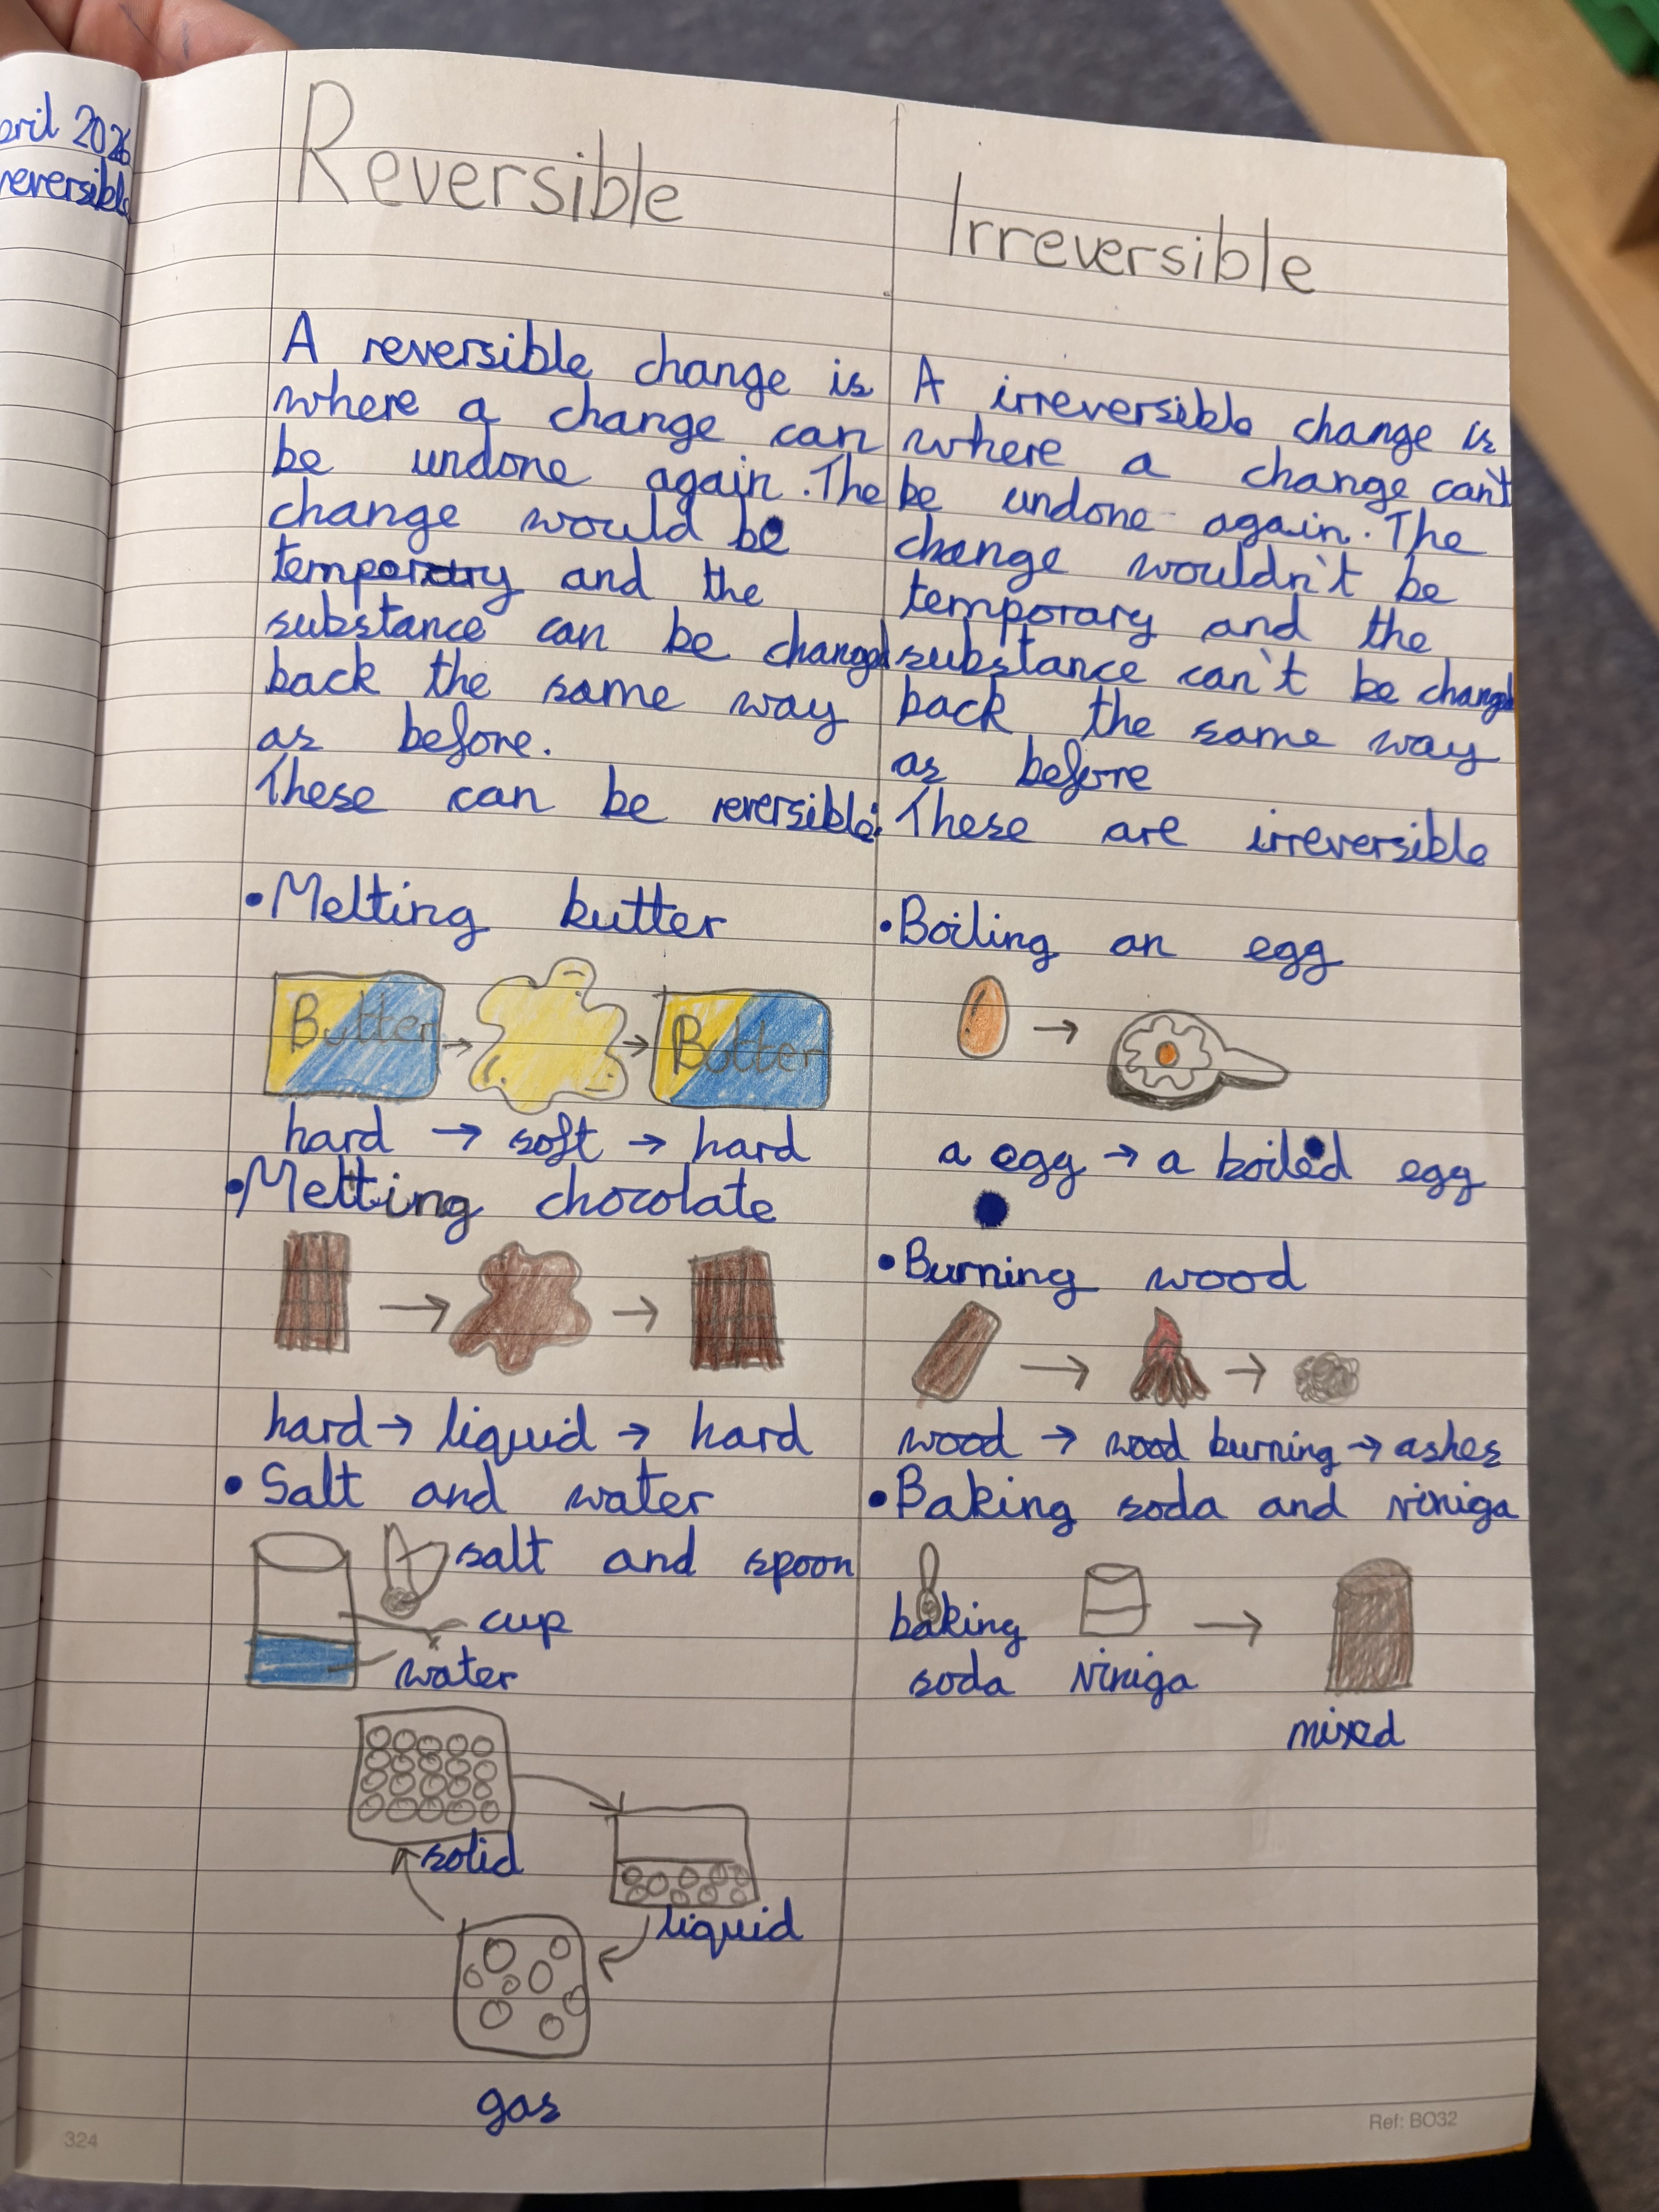 pril 2026
reversible
Reversible
A reversible change is
where a change can
be undone again. The
change would be
temporary and the
substance can be changed
back the same way
as before.
These can be reversible:
• Melting butter
Butter
Butter
hard → soft → hard
• Melting chocolate
hard → liquid → hard
• Salt and water
salt and spoon
cup
water
solid
liquid
gas
324
Irreversible
A irreversible change is
where a change can't
be undone again. The
change wouldn't be
temporary and the
substance can't be changed
back the same way
as before
These are irreversible
• Boiling an egg
a egg → a boiled egg
• Burning wood
wood → wood burning → ashes
• Baking soda and Viniga
baking
soda
Viniga
mixed
Ref: BO32